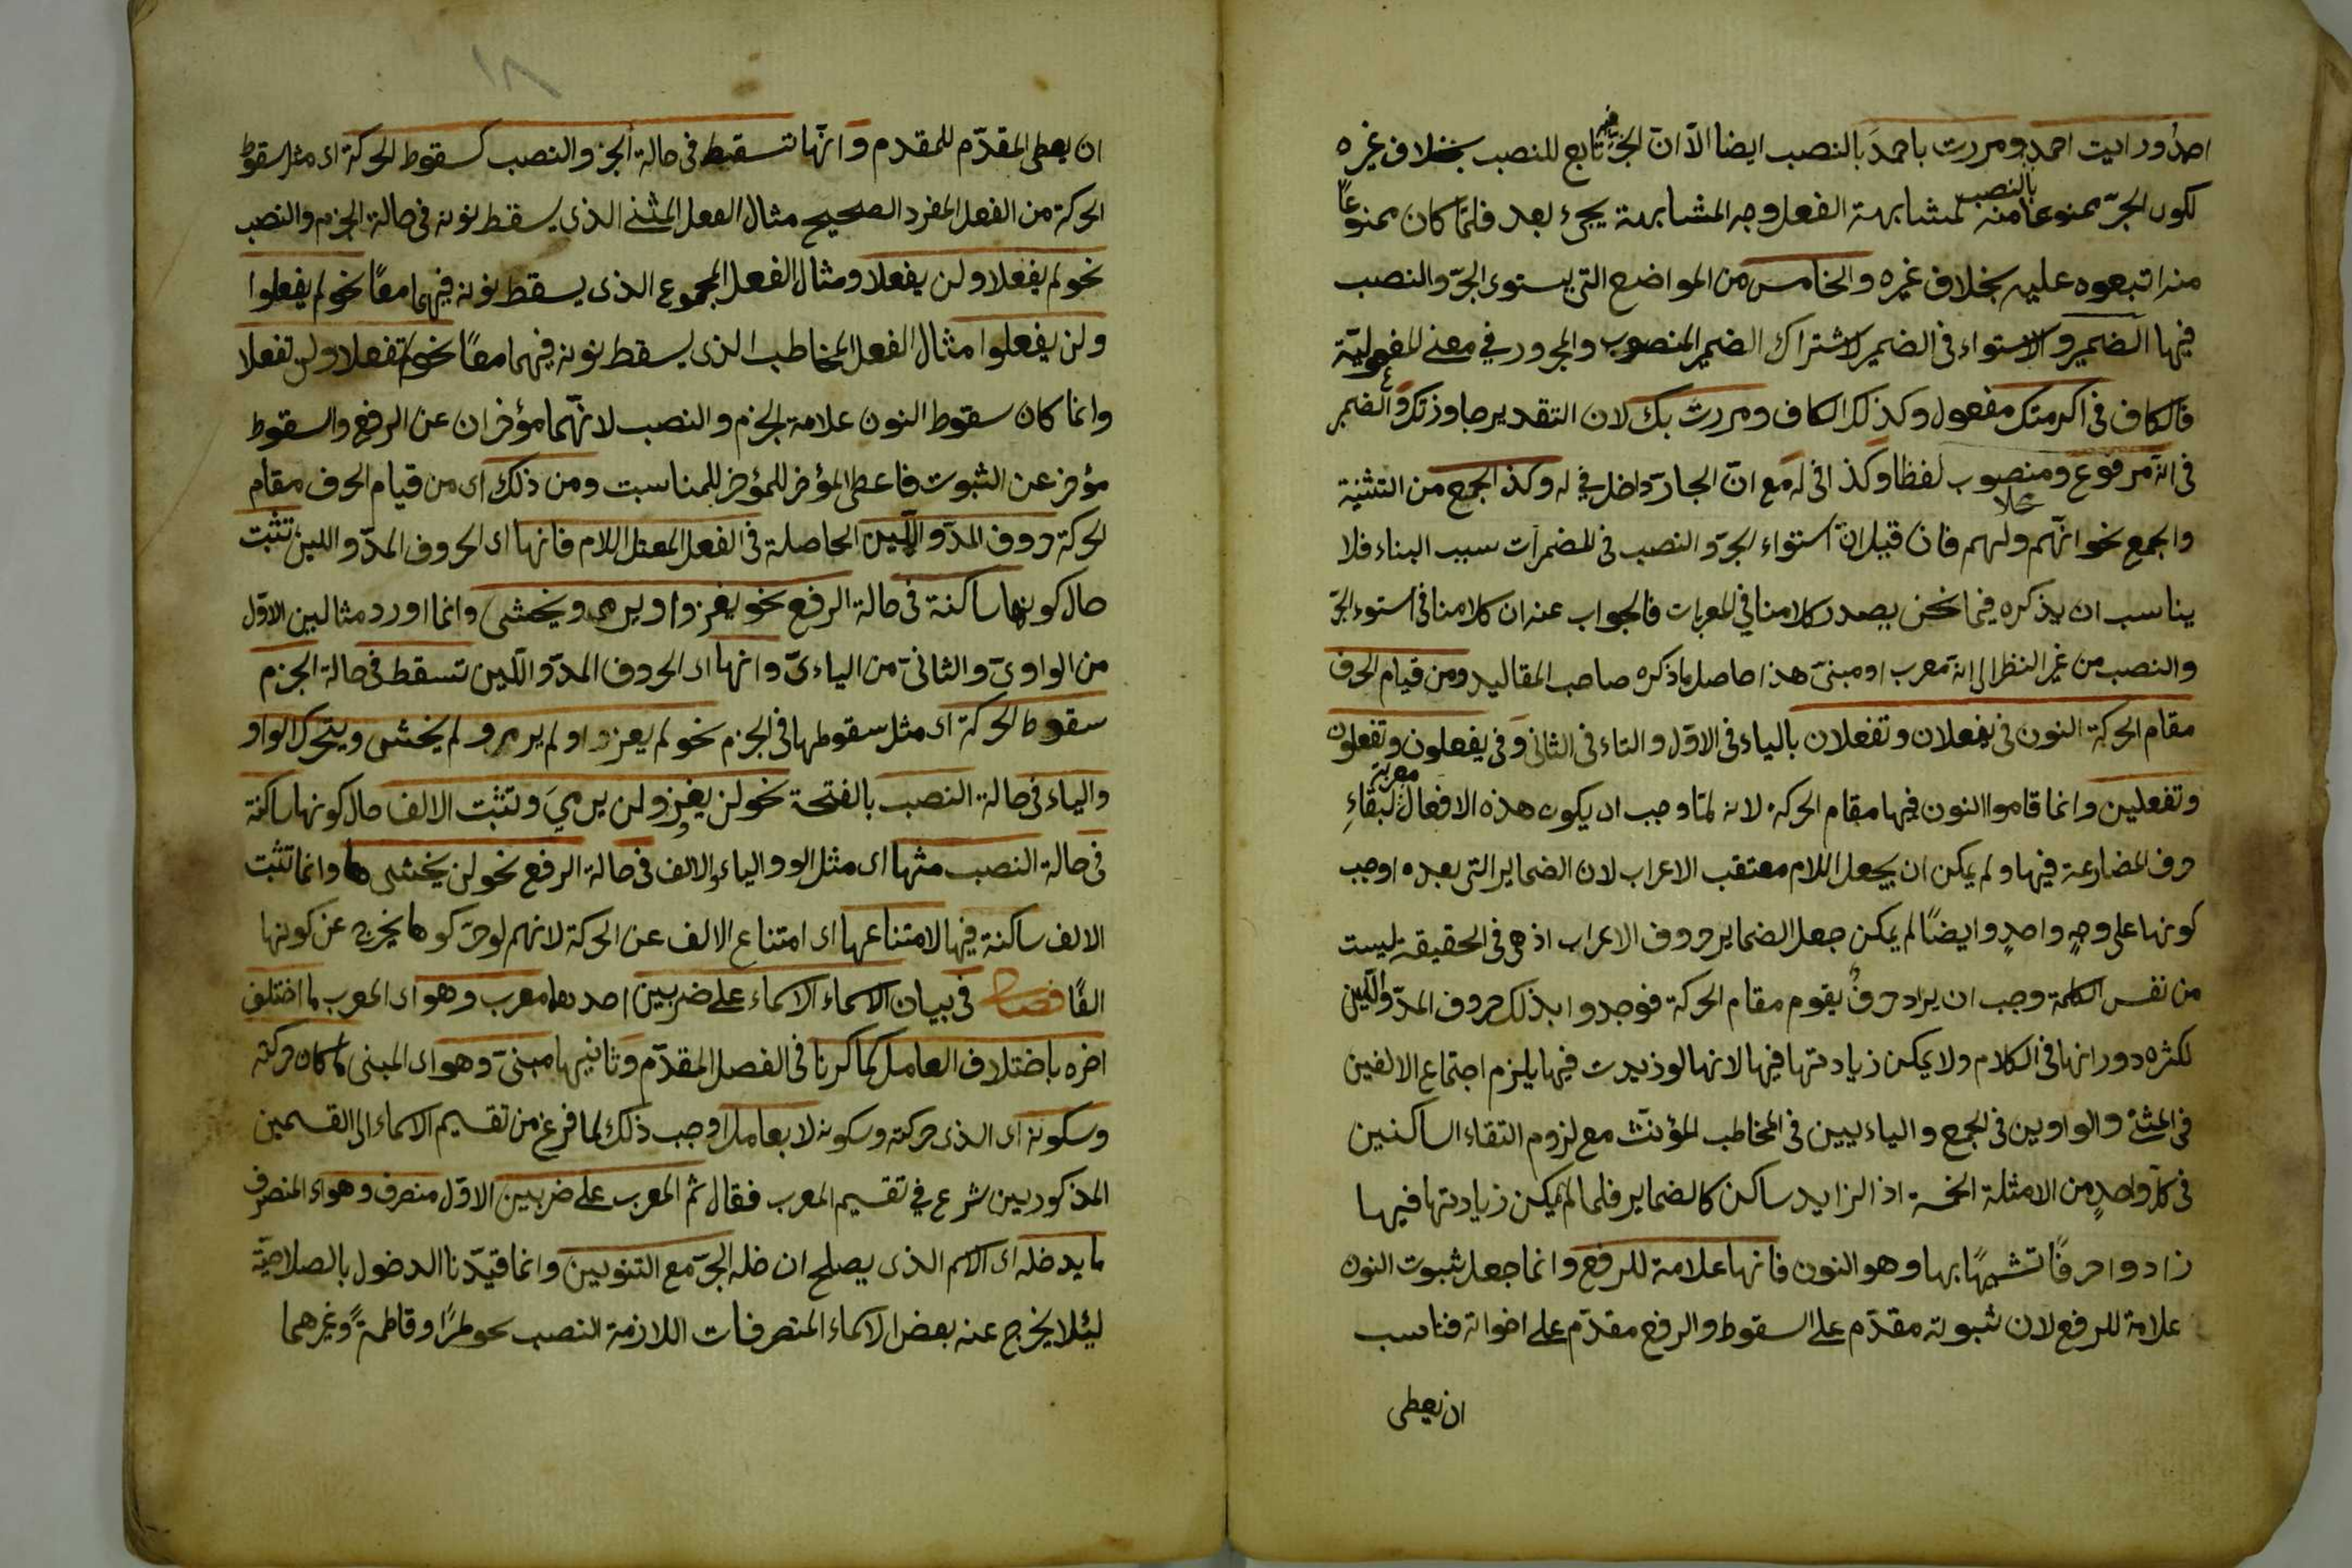 احمدُ ورايت احمدَ ومررت باحمدَ بالنصب ايضا الّا انّ الجرّ فيه تابع للنصب بخلاف غيره
لكون الجرّ ممنوعا منه بالنصب لمشابهة الفعل وجه المشابهة يجيء بعد فلمّا كان ممنوعًا
منه اتبعوه عليه بخلاف غيره والخامس من المواضع التى يستوى الجرّ والنصب
فيها الضمير والاستواء فى الضمير لاشتراك الضمير المنصوب والمجرور في معنى المفعوليّة
فالكاف فى اكرمتك مفعول وكذلك الكاف ومررت بك لان التقدير جاوزتك والضمير
فى انّه مرفوع ومنصوب محلا لفظا وكذا فى له مع انّ الجارّ داخل في له وكذ الجمع من التثنية
والجمع نحو انّهم ولهم فان قيل انّ استواء الجرّ والنصب فى المضمرات سبب البناء فلا
يناسب ان يذكره فيما نحن بصدد كلامنا في المعربات فالجواب عنه ان كلامنا فى استوء الجرّ
والنصب من غير النظر الى انّه معرب او مبنىّ هذا حاصل ما ذكره صاحب المقاليد ومن قيام الحرف
مقام الحركة النون فى يفعلان وتفعلان بالياء فى الاوّل والتاء فى الثانى وَ فى يفعلون وتفعلون
وتفعلين وانما قاموا النون فيها مقام الحركة لانه لمّا وجب ان يكون هذه الافعال معربة لبقاءِ
حرف المضارعة فيها ولم يمكن ان يجعل اللام معتقب الاعراب لان الضماير التى بعده اوجب
كونها على وجهٍ واحدٍ وايضًا لم يمكن جعل الضماير حروف الاعراب اذ هى فى الحقيقة ليست
من نفس الكلمة وجب ان يزاد حرفٌ يقوم مقام الحركة فوجدوا بذلك حروف المدّ واللّين
لكثره دورانها فى الكلام ولا يمكن زيادتها فيها لانها لو زيدت فيها يلزم اجتماع الالفين
فى المثنّى والواوين فى الجمع والياءيين فى المخاطب المؤنّث مع لزوم التقاء الساكنين
فى كلّ واحدٍ من الامثلة الخمسة اذ الزايد ساكن كالضماير فلما لم يمكن زيادتها فيها
زادوا حرفًا تشبيهًا بها وهو النون فانها علامة للرفع وانما جعل ثبوت النون
علامة للرفع لان ثبوته مقدّم على السقوط والرفع مقدّم على اخواته فناسب
ان يعطى
١٨
ان يعطى المقدّم للمقدم وَانّها تسقط فى حالة الجزم والنصب كسقوط الحركة اى مثل سقوط
الحركة من الفعل المفرد الصحيح مثال الفعل المثنى الذى يسقط نونه فى حالة الجزم والنصب
نحو لم يفعلا ولن يفعلا ومثال الفعل المجموع الذى يسقط نونه فيهما معًا نحو لم يفعلوا
ولن يفعلوا مثال الفعل المخاطب الذى يسقط نونه فيهما معًا نحو لم تفعلا ولن تفعلا
وانما كان سقوط النون علامة الجزم والنصب لانّهما مؤخران عن الرفع والسقوط
مؤخر عن الثبوت فاعطى المؤخر للمؤخر للمناسبت ومن ذلك اى من قيام الحرف مقام
الحركة حروف المدّ واللّين الحاصلة فى الفعل المعتل اللام فانها اى الحروف المدّ واللين تثبت
حال كونها ساكنة فى حالة الرفع نحو يغزوا ويرمى ويخشى وانما اورد مثالين الاوّل
من الواوىّ والثانىّ من الياءىّ وانها اى الحروف المدّ واللّين تسقط فى حالة الجزم
سقوط الحركة اى مثل سقوطها فى الجزم نحو لم يغزوا ولم يرم ولم يخش ويتحرك الواو
والياء فى حالة النصب بالفتحة نحو لن يغزو ولن يرميَ وتثبت الالف حال كونها ساكنة
فى حالة النصب مثلها اى مثل الوو والياء والالف فى حالة الرفع نحو لن يخشى وانما تثبت
الالف ساكنة فيها لامتناعها اى امتناع الالف عن الحركة لانهم لو حرّكوها يخرج عن كونها
الفًا فصل فى بيان الاسماء الاسماء على ضربين احدهما معرب وهو اى المعرب ما اختلف
اخره باختلاف العامل كما كرنا فى الفصل المقدّم وَثانيها مبنىّ وهو اى المبنى ما كان حركته
وسكونه اى الذى حركته وسكونه لا بعامل اوجب ذلك لما فرغ من تقسيم الاسماء الى القسمين
المذكوريين شرع في تقسيم المعرب فقال ثم المعرب على ضربين الاوّل منصرف وهو اى المنصرف
ما يدخله اى الاسم الذى يصلح ان خله الجرّ مع التنوين وانما قيّدنا الدخول بالصلاحيّة
ليئلا يخرج عنه بعض الاسماء المنصرفات اللازمة النصب نحو طرًا وقاطمةً وغيرهما